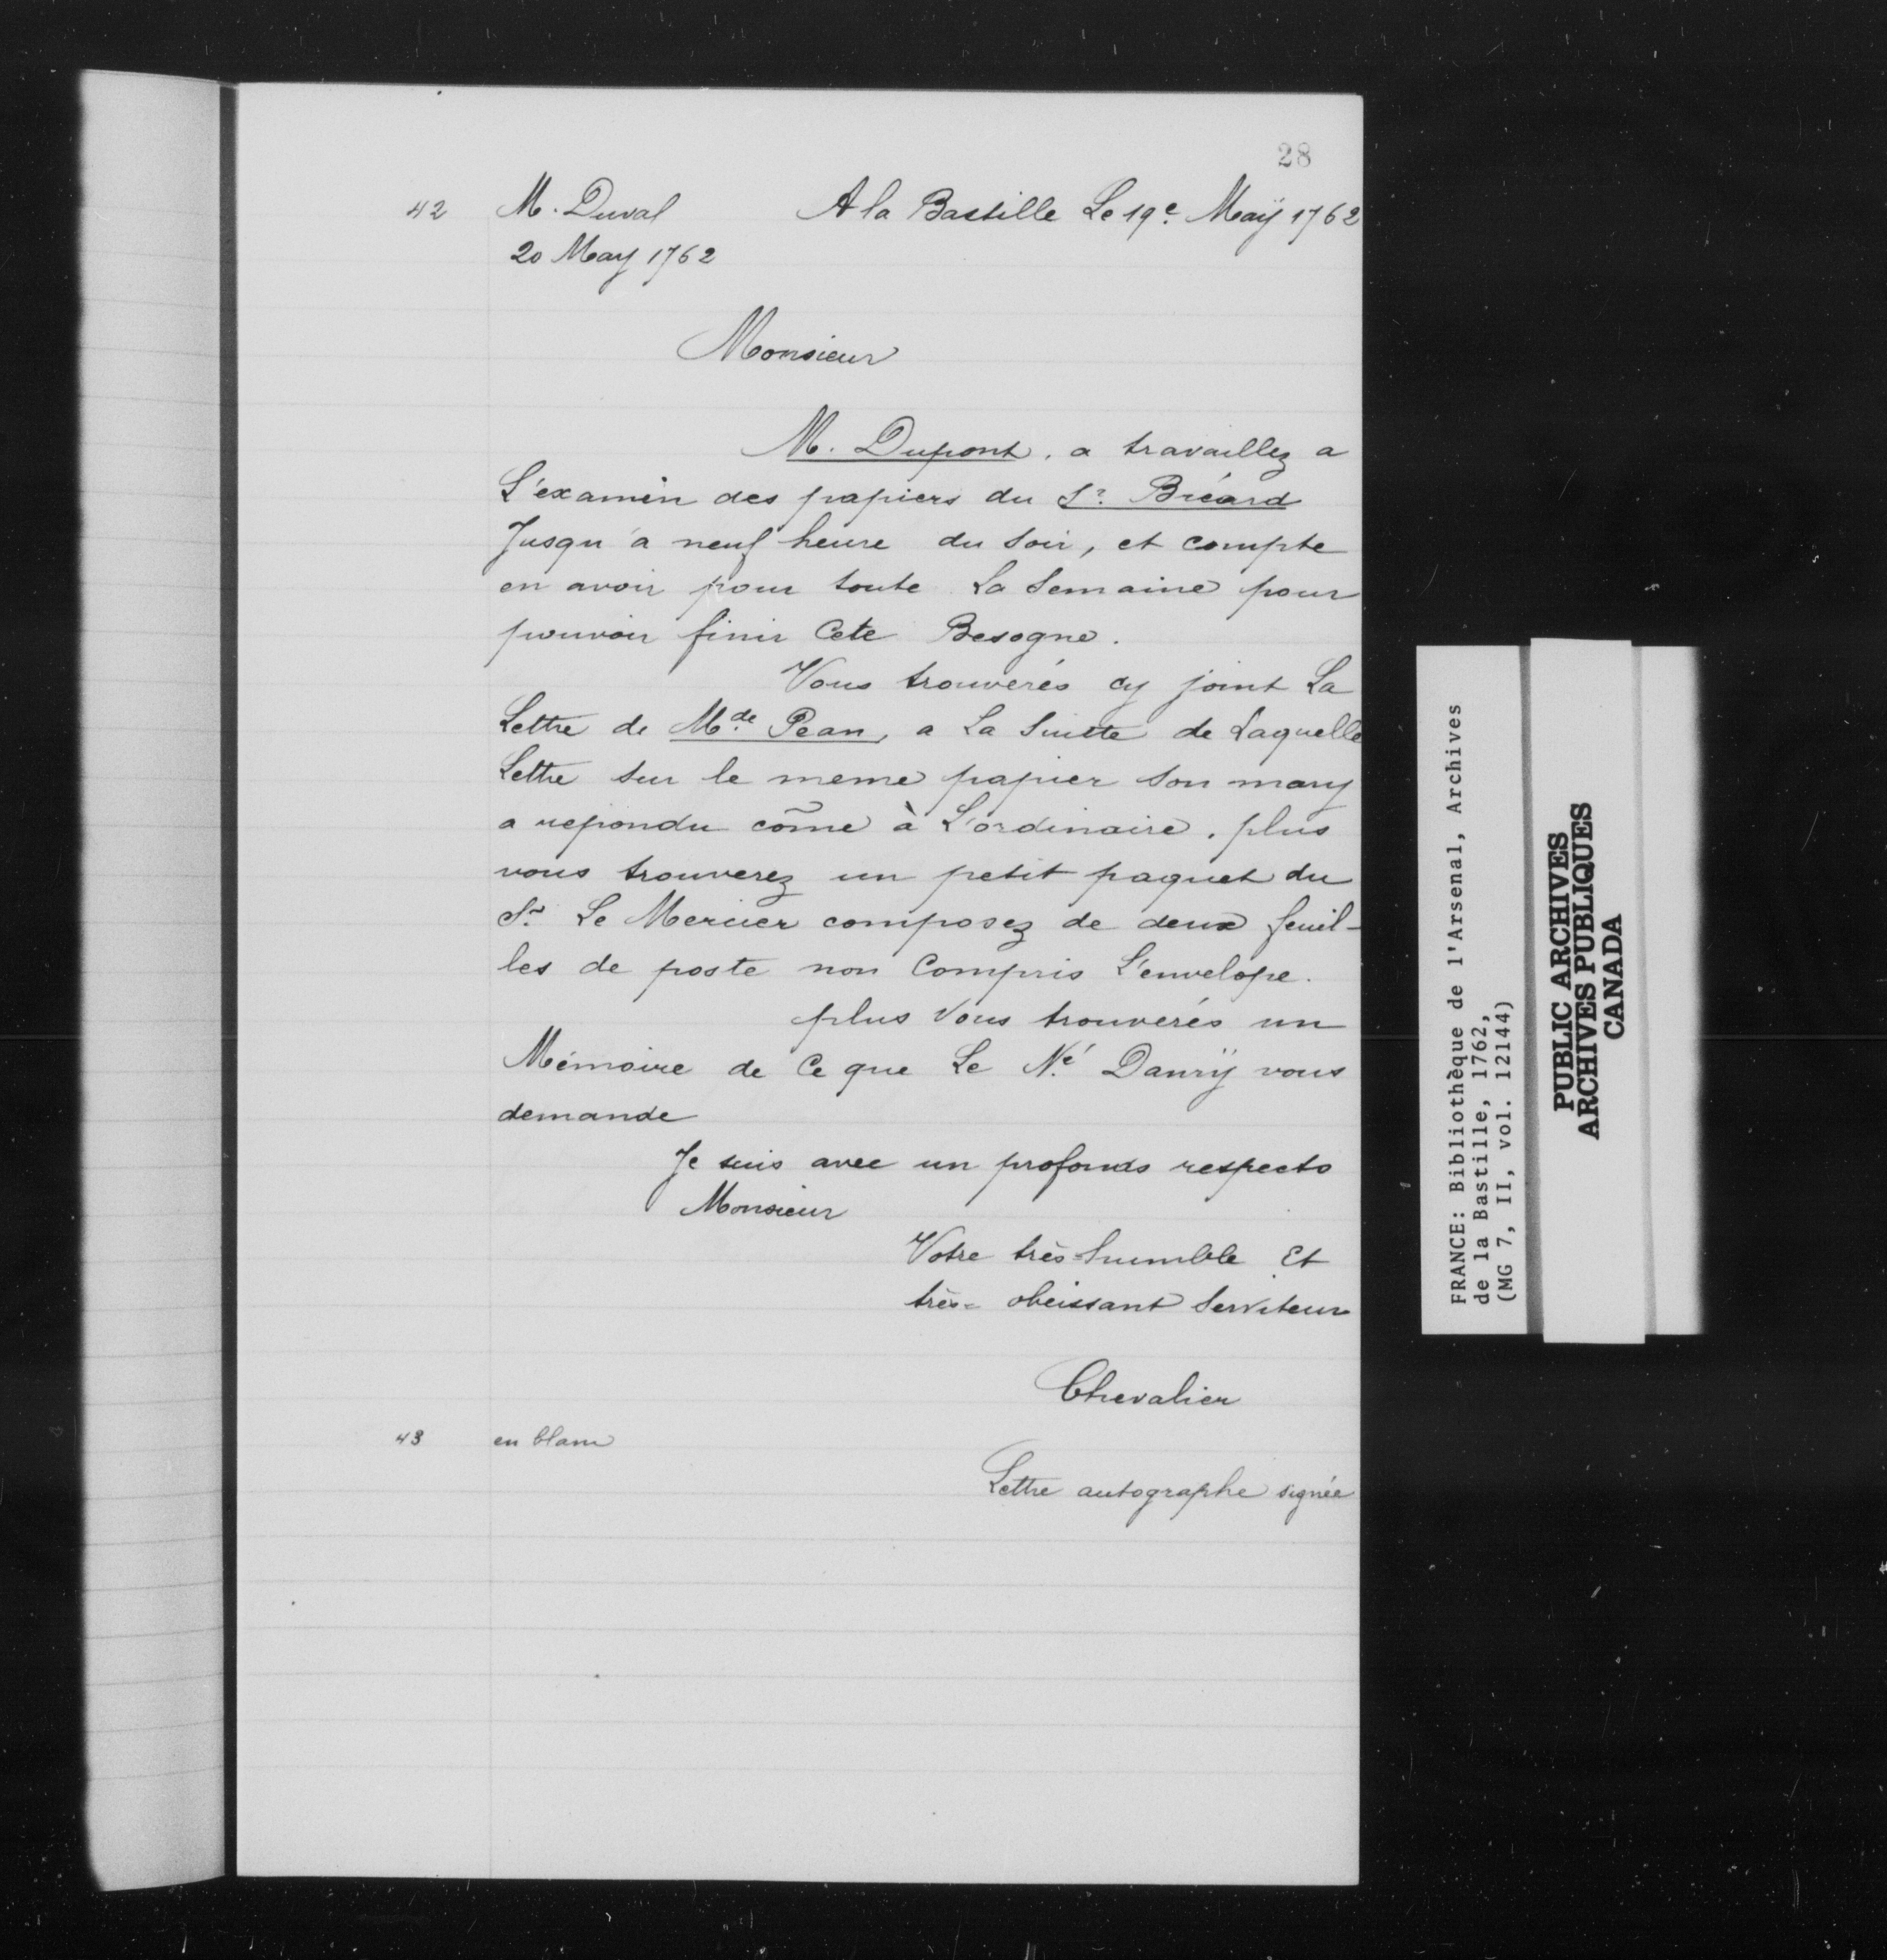 28
42 M. Duval A la Bastille Le 19e. Maÿ 1762
20 May 1762
Monsieur
M. Dupont, a travaillez a
L'examen des papiers du Sr. Bréard
Jusqu'a neuf heure du soir, et compte
en avoir pour toute La Semaine pour
pouvoir finir Cete Besogne.
Vous trouverés cy joint La
Lettre de Mde. Pean, a La Suitte de Laquelle
Lettre sur le meme papier son mary
a repondu com̃e à L'ordinaire. plus
vous trouverez un petit paquet du
Sr. Le Mercier composez de deux feuil-
les de poste non Compris L'envelope.
plus Vous trouverés un
Mémoire de Ce que Le Né. Danrÿ vous
demande
Je suis avec un profonds respects
Monsieur
Votre très humble Et
très = obeissant Serviteur
Chevalier
43 en blanc
Lettre autographe signée
FRANCE: Bibliothèque de l'Arsenal, Archives
de la Bastille, 1762,
(MG 7, II, vol. 12144)
PUBLIC ARCHIVES
ARCHIVES PUBLIQUES
CANADA